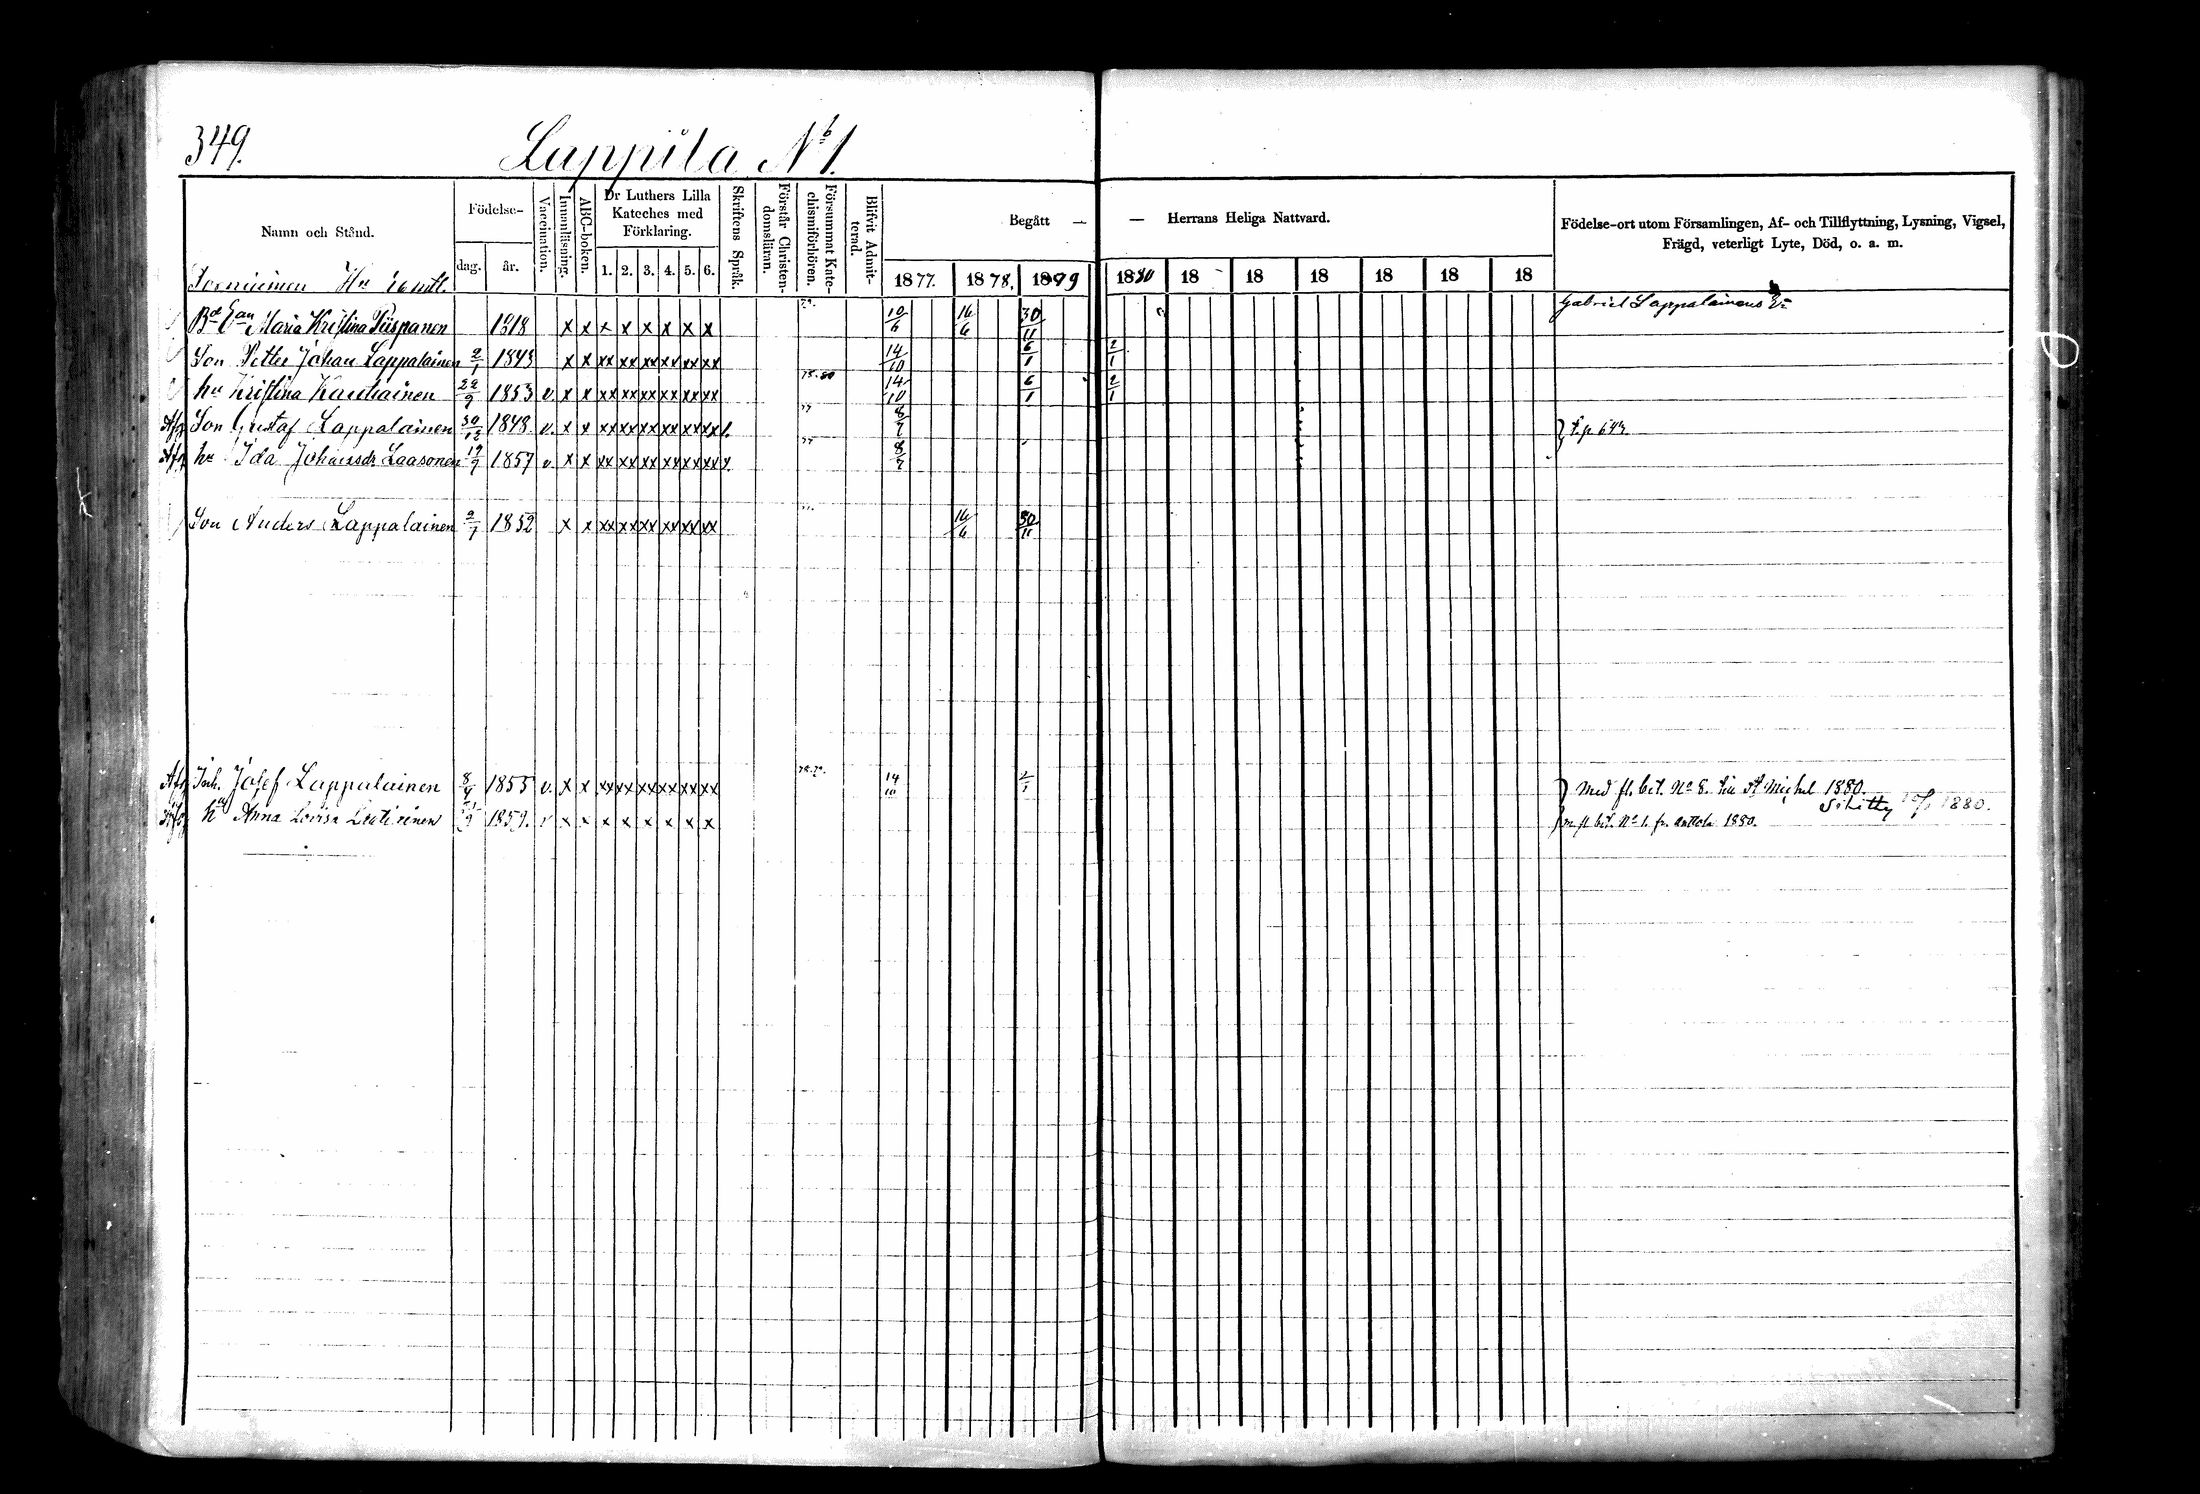 349.
Lappila No 1.
Namn och Stånd.
Födelse-
dag.
år.
Vaccination.
Innanläsning.
ABC-boken.
Dr Luthers Lilla
Kateches med
Förklaring.
1. 2. 3. 4. 5. 6.
Skriftens Språk.
Förstår Christen-
domsläran.
Försummat Kate-
chismiförhören.
Blifvit Admit-
terad.
Begått — — Herrans Heliga Nattvard.
1877. 1878, 1879 1880 18 18 18 18 18 18
Födelse-ort utom Församlingen, Af- och Tillflyttning, Lysning, Vigsel,
Frägd, veterligt Lyte, Död, o. a. m.
Maria Kristina Piispanen 1818 x x x x x x x x 10/6 16/6 30/11 Gabriel Lappalainens
Son Petter Johan Lappalainen 2/1 1843 x x xx xx xx xx xx xx 14/10 6/1 2/1
hu Kristina 1853 v. x x xx xx xx xx xx xx 14/10 6/1 2/1
Son Gustaf Lappalainen 30/12 1848 v. x x xx xx xx xx xx xx 8/7 f. p 643.
hu Ida Johansdr Laasonen 19/7 1857 v x x xx xx xx xx xx xx 8/7
Son Anders Lappalainen 2/7 1852 x x xx xx xx xx xx xx 16/6 30/11
Josef Lappalainen 1855 v. x x xx xx xx xx xx xx 14/10 Med fl. bet. No 8. till St Michel 1880.
hu Anna Lovisa 1859. v x x x x x x x x m fl bet. No 1. fr. Anttola 1880. 1880.